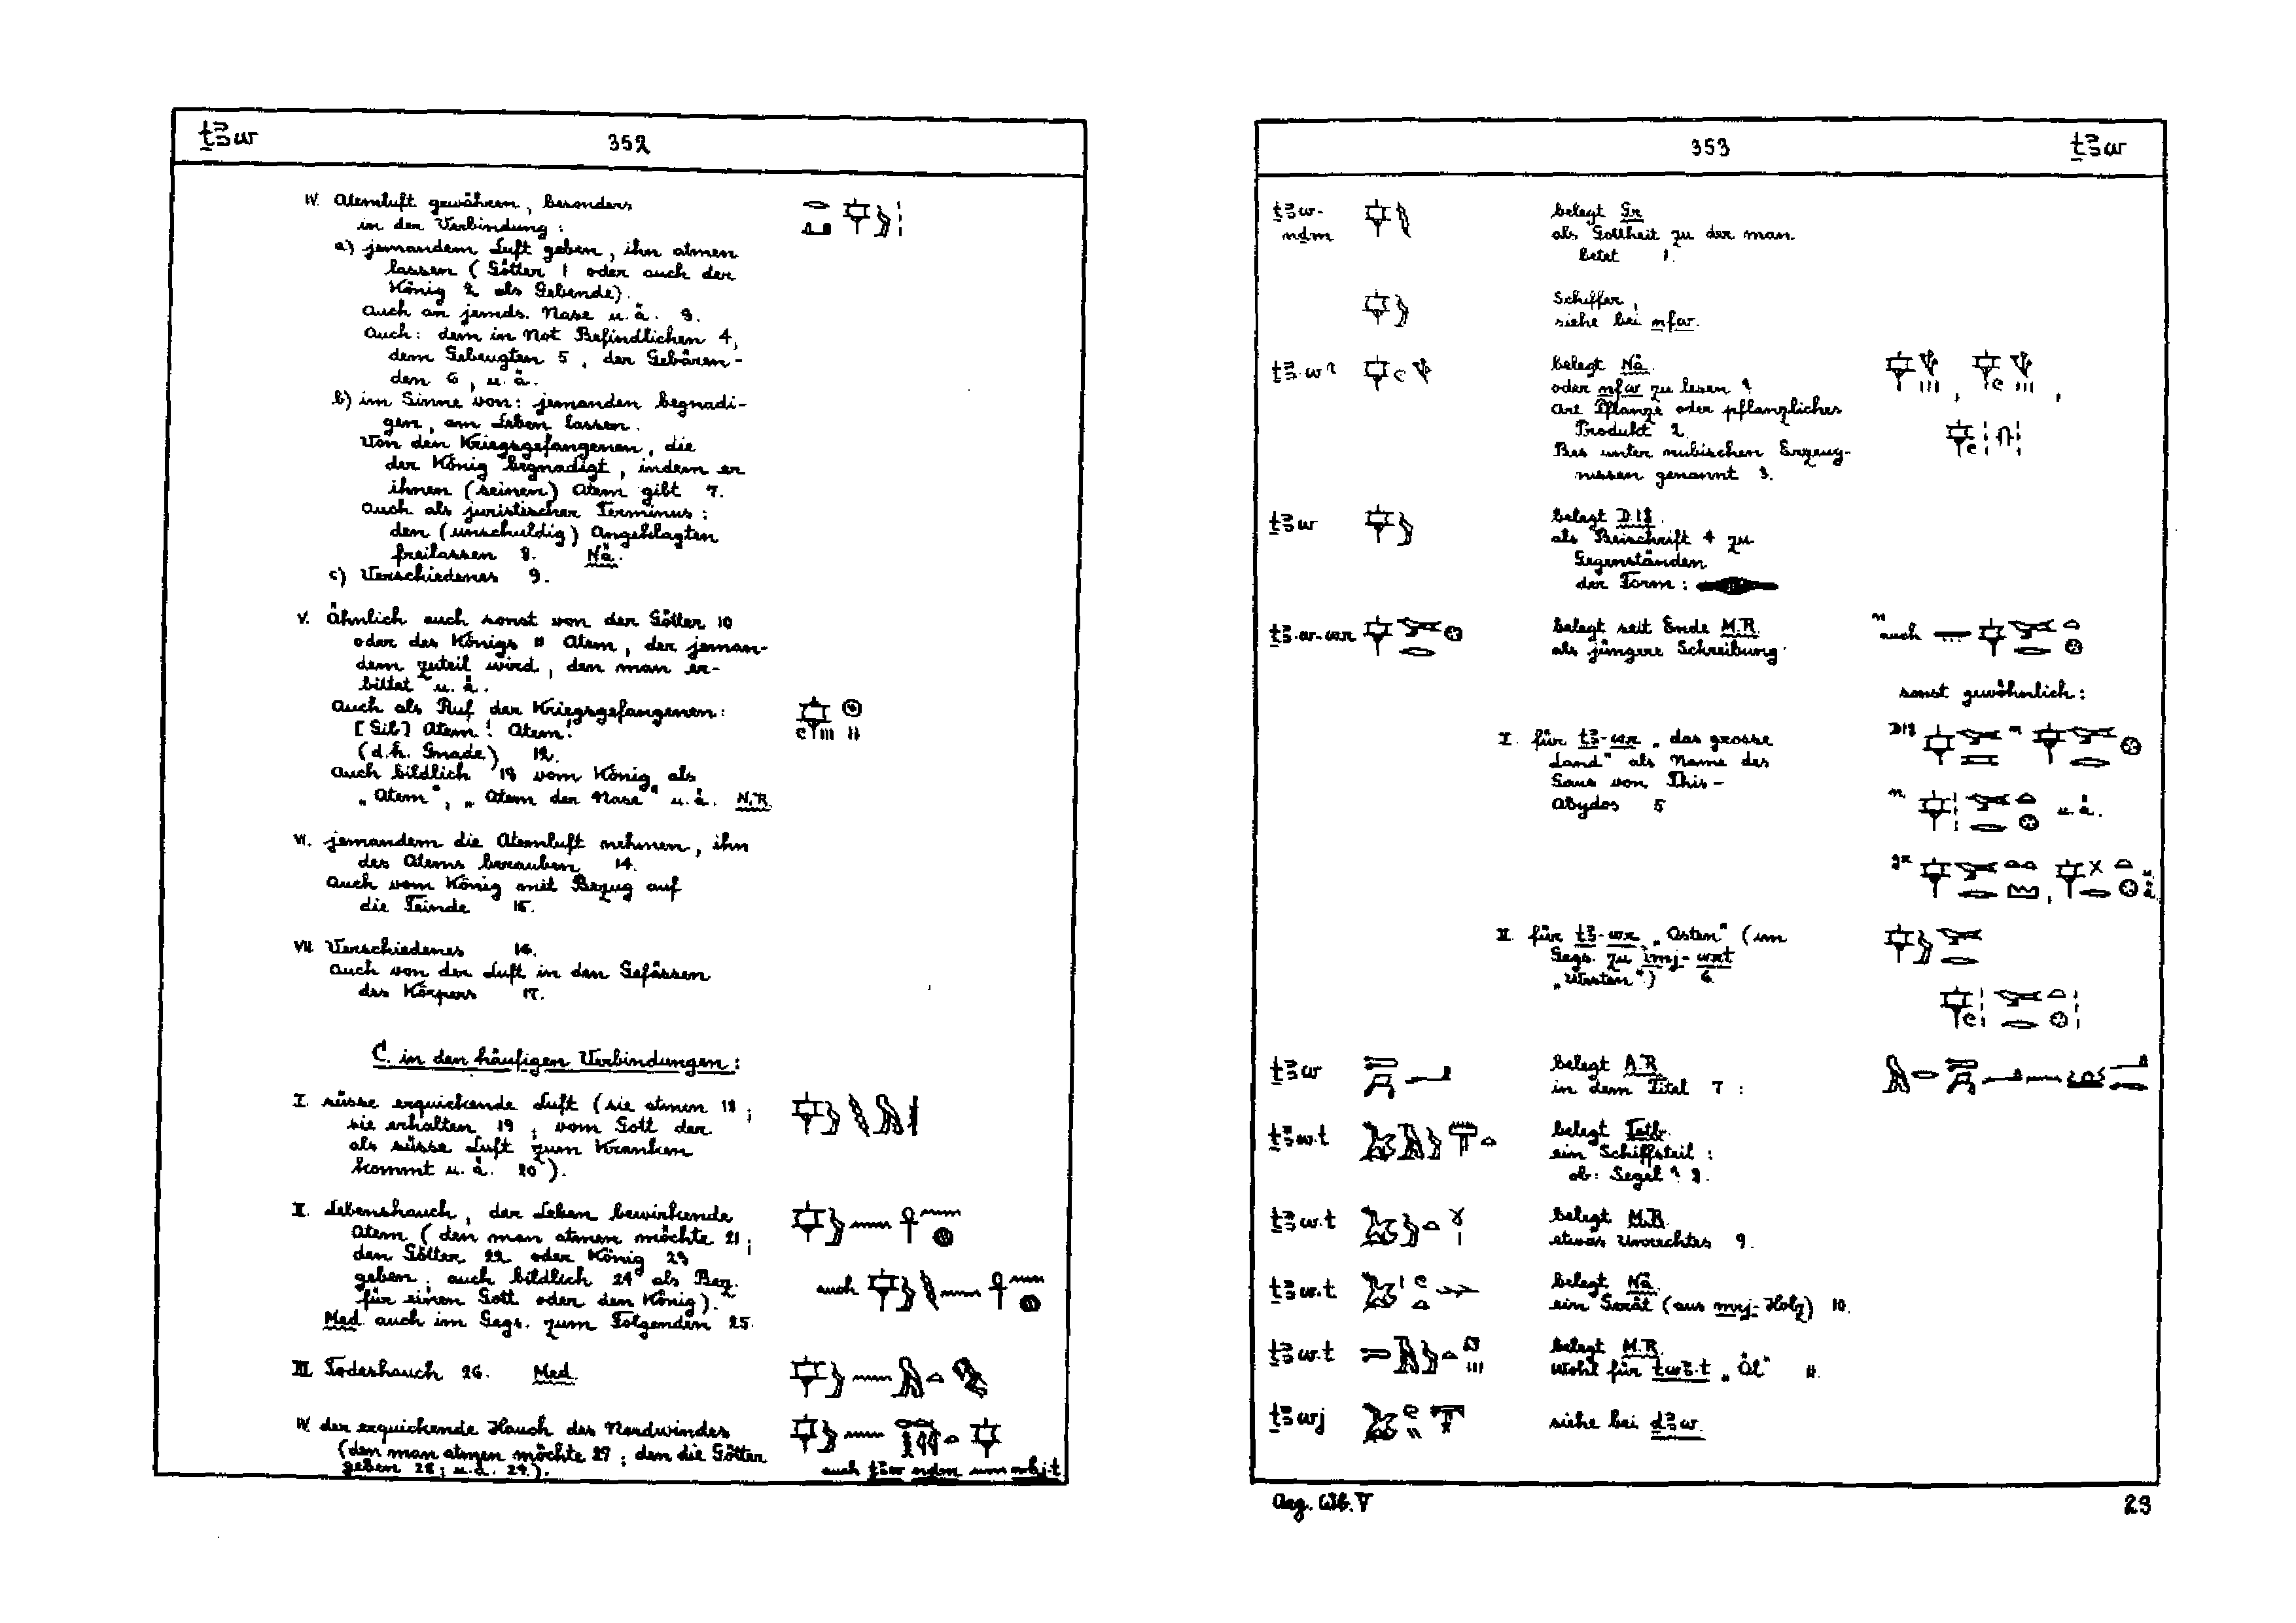 ṯꜣw 352
IV. Atemluft gewähren, besonders
in der Verbindung:
a) jemandem Luft geben, ihn atmen
lassen (Götter 1 oder auch der
König 2 als Gebende).
Auch an jemds. Nase u.ä. 3.
Auch: dem in Not Befindlichen 4,
dem Gebeugten 5, der Gebären-
den 6, u.ä.
b) im Sinne von: jemanden begnadi-
gen, am Leben lassen.
Von den Kriegsgefangenen, die
der König begnadigt, indem er
ihnen (seinen) Atem gibt 7.
Auch als juristischer Terminus:
den (unschuldig) Angeklagten
freilassen 8. Nä.
c) Verschiedenes 9.
V. Ähnlich auch sonst von der Götter 10
oder des Königs 11 Atem, der jeman-
dem zuteil wird, den man er-
bittet u.ä.
Auch als Ruf der Kriegsgefangenen:
[Gib] Atem! Atem!
(d.h. Gnade) 12.
Auch bildlich 13 vom König als
„Atem“, „Atem der Nase“ u.ä. N.R.
VI. jemandem die Atemluft nehmen, ihn
des Atems berauben 14.
Auch vom König mit Bezug auf
die Feinde 15.
VII. Verschiedenes 16.
Auch von der Luft in den Gefässen
des Körpers 17.
C. in den häufigen Verbindungen:
I. süsse erquickende Luft (sie atmen 18;
sie erhalten 19; vom Gott der
als süsse Luft zum Kranken
kommt u.ä. 20).
II. Lebenshauch, der Leben bewirkende
Atem (den man atmen möchte 21;
den Götter 22 oder König 23
geben; auch bildlich 24 als Bez.
für einen Gott oder den König).
auch
Med. auch im Gegs. zum Folgenden 25.
III. Todeshauch 26. Med.
IV. der erquickende Hauch des Nordwindes
(den man atmen möchte 27; den die Götter
geben 28; u.ä. 29.).
auch ṯꜣw nḏm n mḥj.t
353 ṯꜣw
ṯꜣw-
nḏm
belegt Gr.
als Gottheit zu der man
betet 1.
Schiffer,
siehe bei nfw.
ṯꜣw? belegt Nä.
oder nfw zu lesen?
Art Pflanze oder pflanzliches
Produkt 2.
Bes. unter nubischen Erzeug-
nissen genannt 3.
ṯꜣw belegt D.18.
als Beischrift 4 zu
Gegenständen
der Form:
ṯꜣw-wr belegt seit Ende M.R.
als jüngere Schreibung
auch
sonst gewöhnlich:
I. für tꜣ-wr „das grosse
Land“ als Name des
Gaus von This-
Abydos 5
D18
u.ä.
gr
u.ä.
II. für tꜣ-wr „Osten“ (im
Gegs. zu imj-wrt
„Westen“) 6.
ṯꜣw belegt A.R.
in dem Titel 7:
ṯꜣw.t belegt Totb.
ein Schiffsteil:
ob: Segel? 8.
ṯꜣw.t belegt M.R.
etwas Unrechtes 9.
ṯꜣw.t belegt Nä.
ein Gerät (aus mrj-Holz) 10.
ṯꜣw.t belegt M.R.
Wohl für twꜣ.t „Öl“ 11.
ṯꜣwj siehe bei dꜣw.
Aeg. Wb. V 23